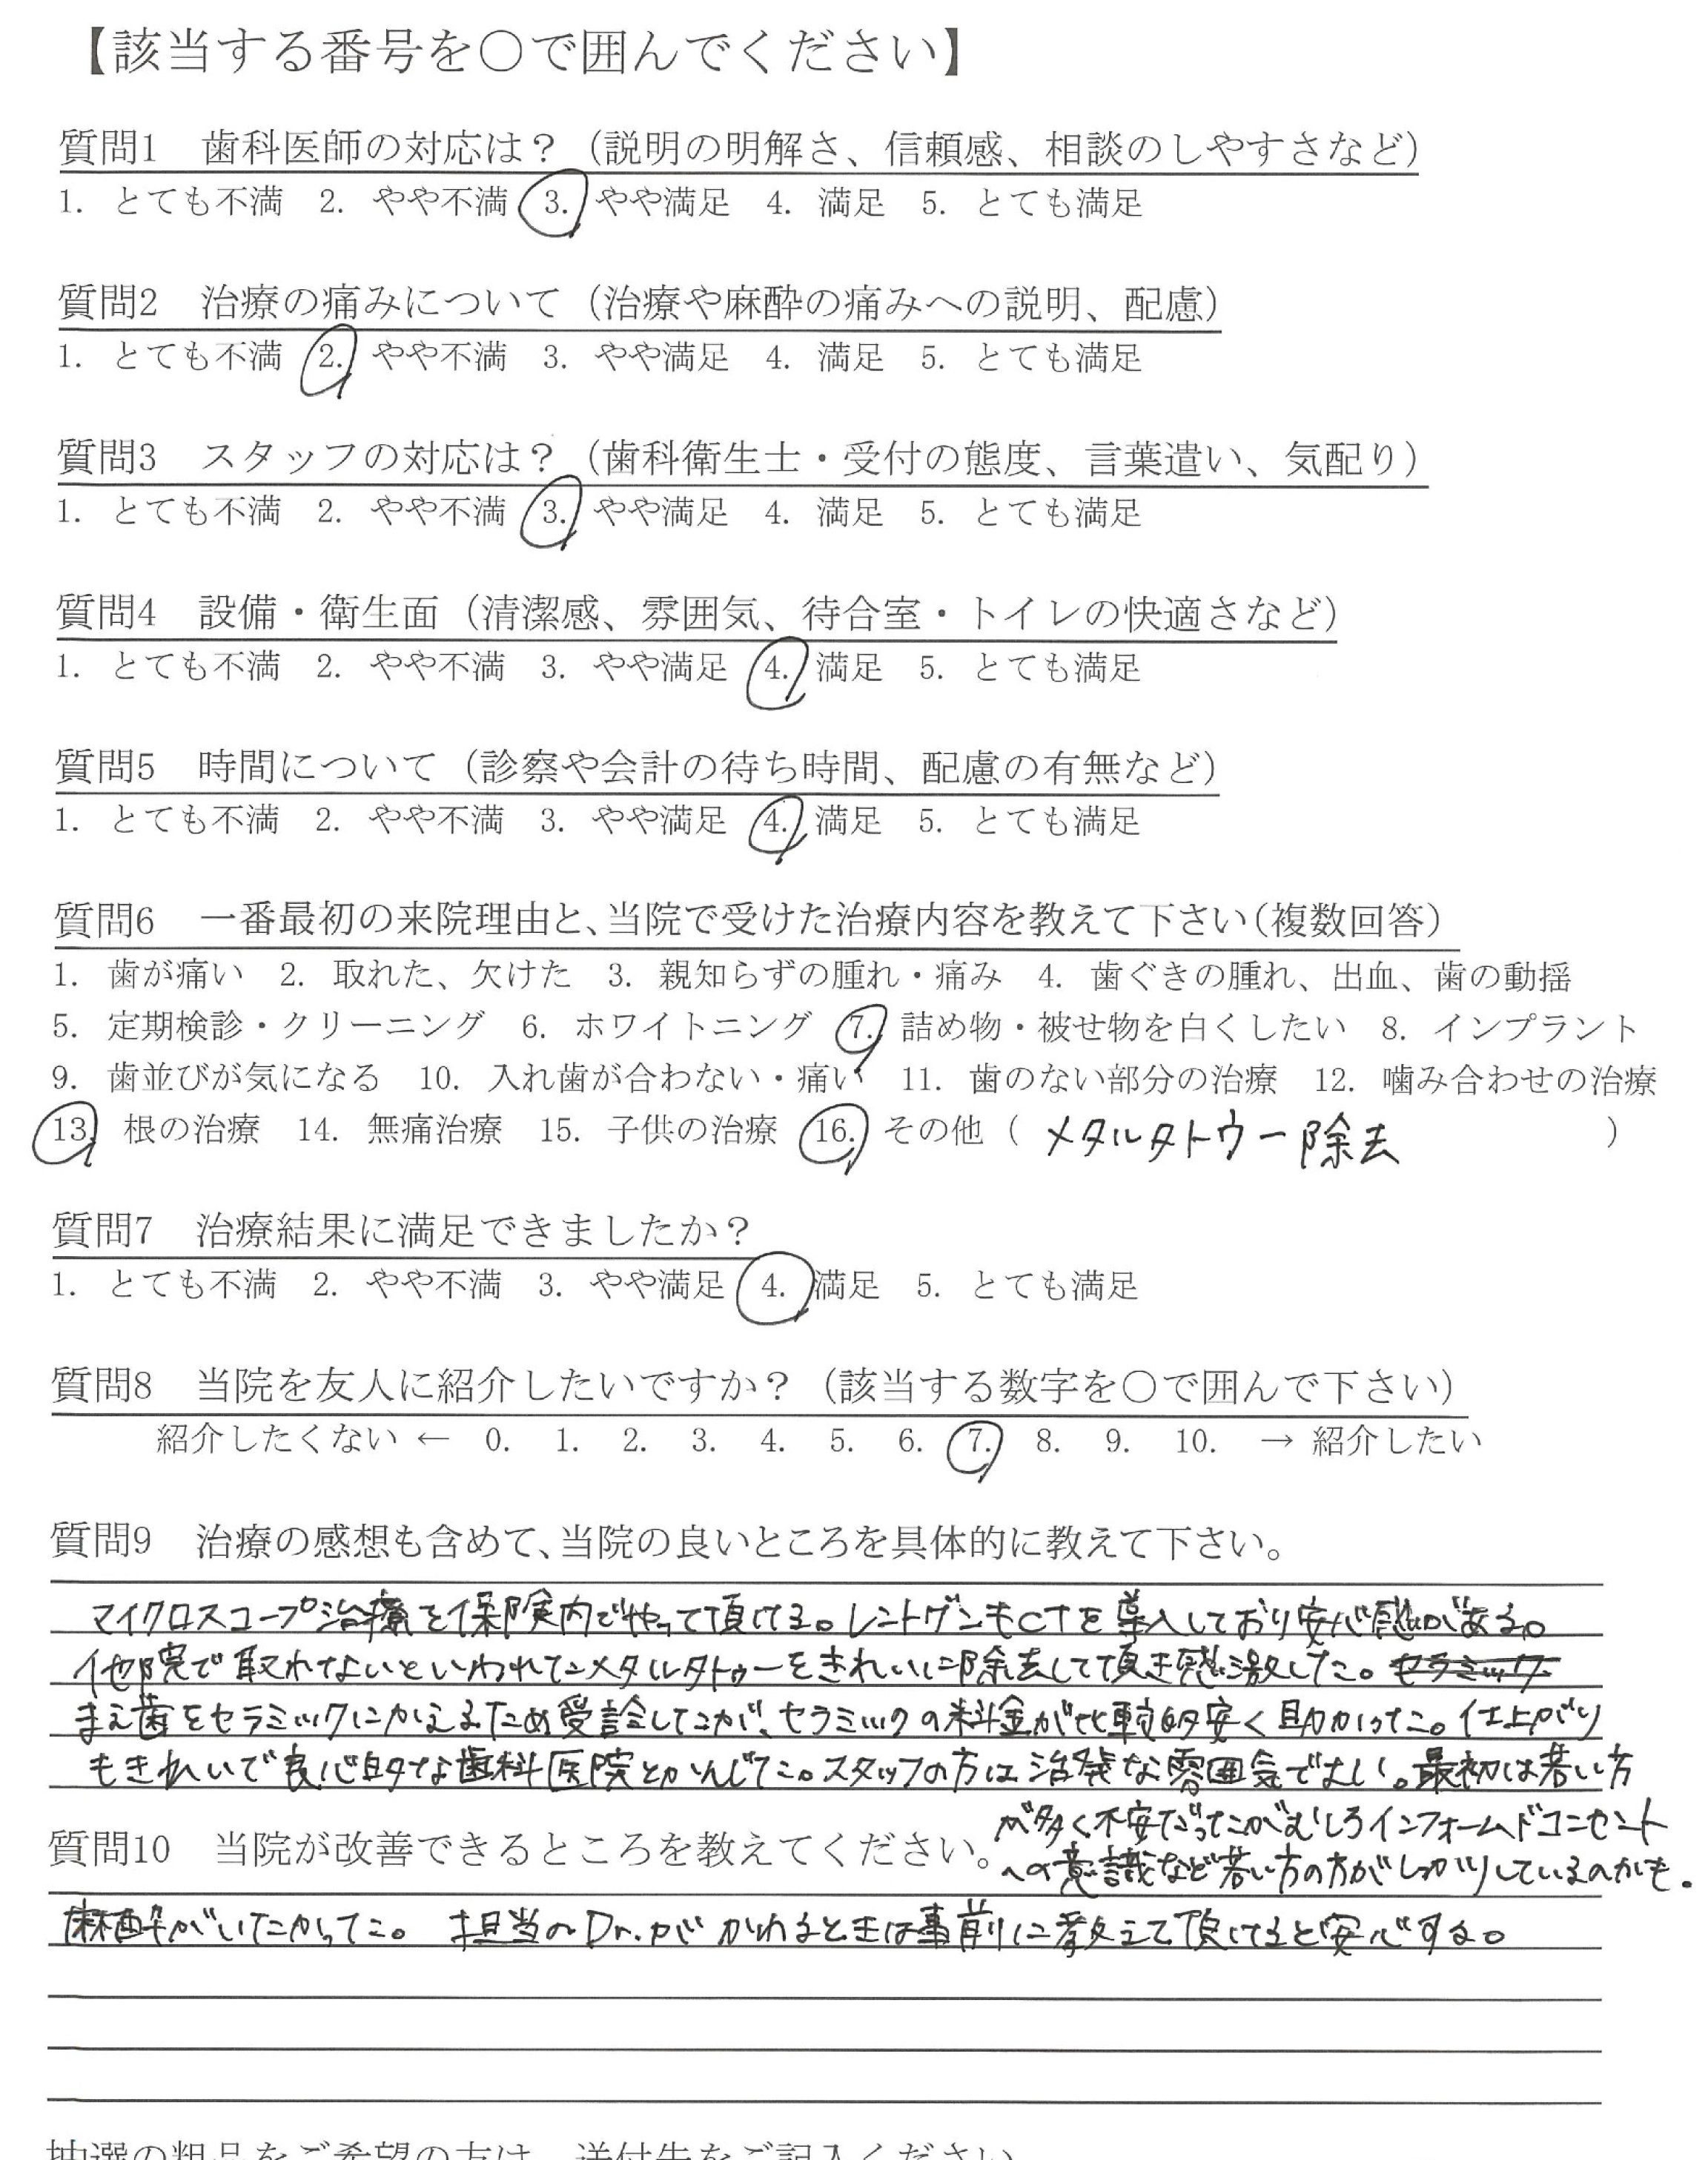 【該当する番号を〇で囲んでください】
質問1　歯科医師の対応は？（説明の明解さ、信頼感、相談のしやすさなど）
1. とても不満　2. やや不満　3. やや満足　4. 満足　5. とても満足
質問2　治療の痛みについて（治療や麻酔の痛みへの説明、配慮）
1. とても不満　2. やや不満　3. やや満足　4. 満足　5. とても満足
質問3　スタッフの対応は？（歯科衛生士・受付の態度、言葉遣い、気配り）
1. とても不満　2. やや不満　3. やや満足　4. 満足　5. とても満足
質問4　設備・衛生面（清潔感、雰囲気、待合室・トイレの快適さなど）
1. とても不満　2. やや不満　3. やや満足　4. 満足　5. とても満足
質問5　時間について（診察や会計の待ち時間、配慮の有無など）
1. とても不満　2. やや不満　3. やや満足　4. 満足　5. とても満足
質問6　一番最初の来院理由と、当院で受けた治療内容を教えて下さい（複数回答）
1. 歯が痛い　2. 取れた、欠けた　3. 親知らずの腫れ・痛み　4. 歯ぐきの腫れ、出血、歯の動揺
5. 定期検診・クリーニング　6. ホワイトニング　7. 詰め物・被せ物を白くしたい　8. インプラント
9. 歯並びが気になる　10. 入れ歯が合わない・痛い　11. 歯のない部分の治療　12. 噛み合わせの治療
13. 根の治療　14. 無痛治療　15. 子供の治療　16. その他（ メタルタトゥー除去 ）
質問7　治療結果に満足できましたか？
1. とても不満　2. やや不満　3. やや満足　4. 満足　5. とても満足
質問8　当院を友人に紹介したいですか？（該当する数字を〇で囲んで下さい）
紹介したくない ← 0. 1. 2. 3. 4. 5. 6. 7. 8. 9. 10. → 紹介したい
質問9　治療の感想も含めて、当院の良いところを具体的に教えて下さい。
マイクロスコープ治療を保険内でやって頂ける。レントゲンもCTを導入しており安心感がある。
他院で取れないといわれたメタルタトゥーをきれいに除去して頂き感激した。セラミック
まえ歯をセラミックにかえるため受診したが、セラミックの料金が比較的安く助かった。仕上がり
もきれいで良心的な歯科医院とかんじた。スタッフの方は活発な雰囲気でよい。最初は若い方
が多く不安だったがむしろインフォームドコンセント
への意識など若い方の方がしっかりしているのかも。
質問10　当院が改善できるところを教えてください。
麻酔がいたかった。 担当のDr.がかわるときは事前に教えて頂けると安心する。
抽選の粗品をご希望の方は、送付先をご記入ください